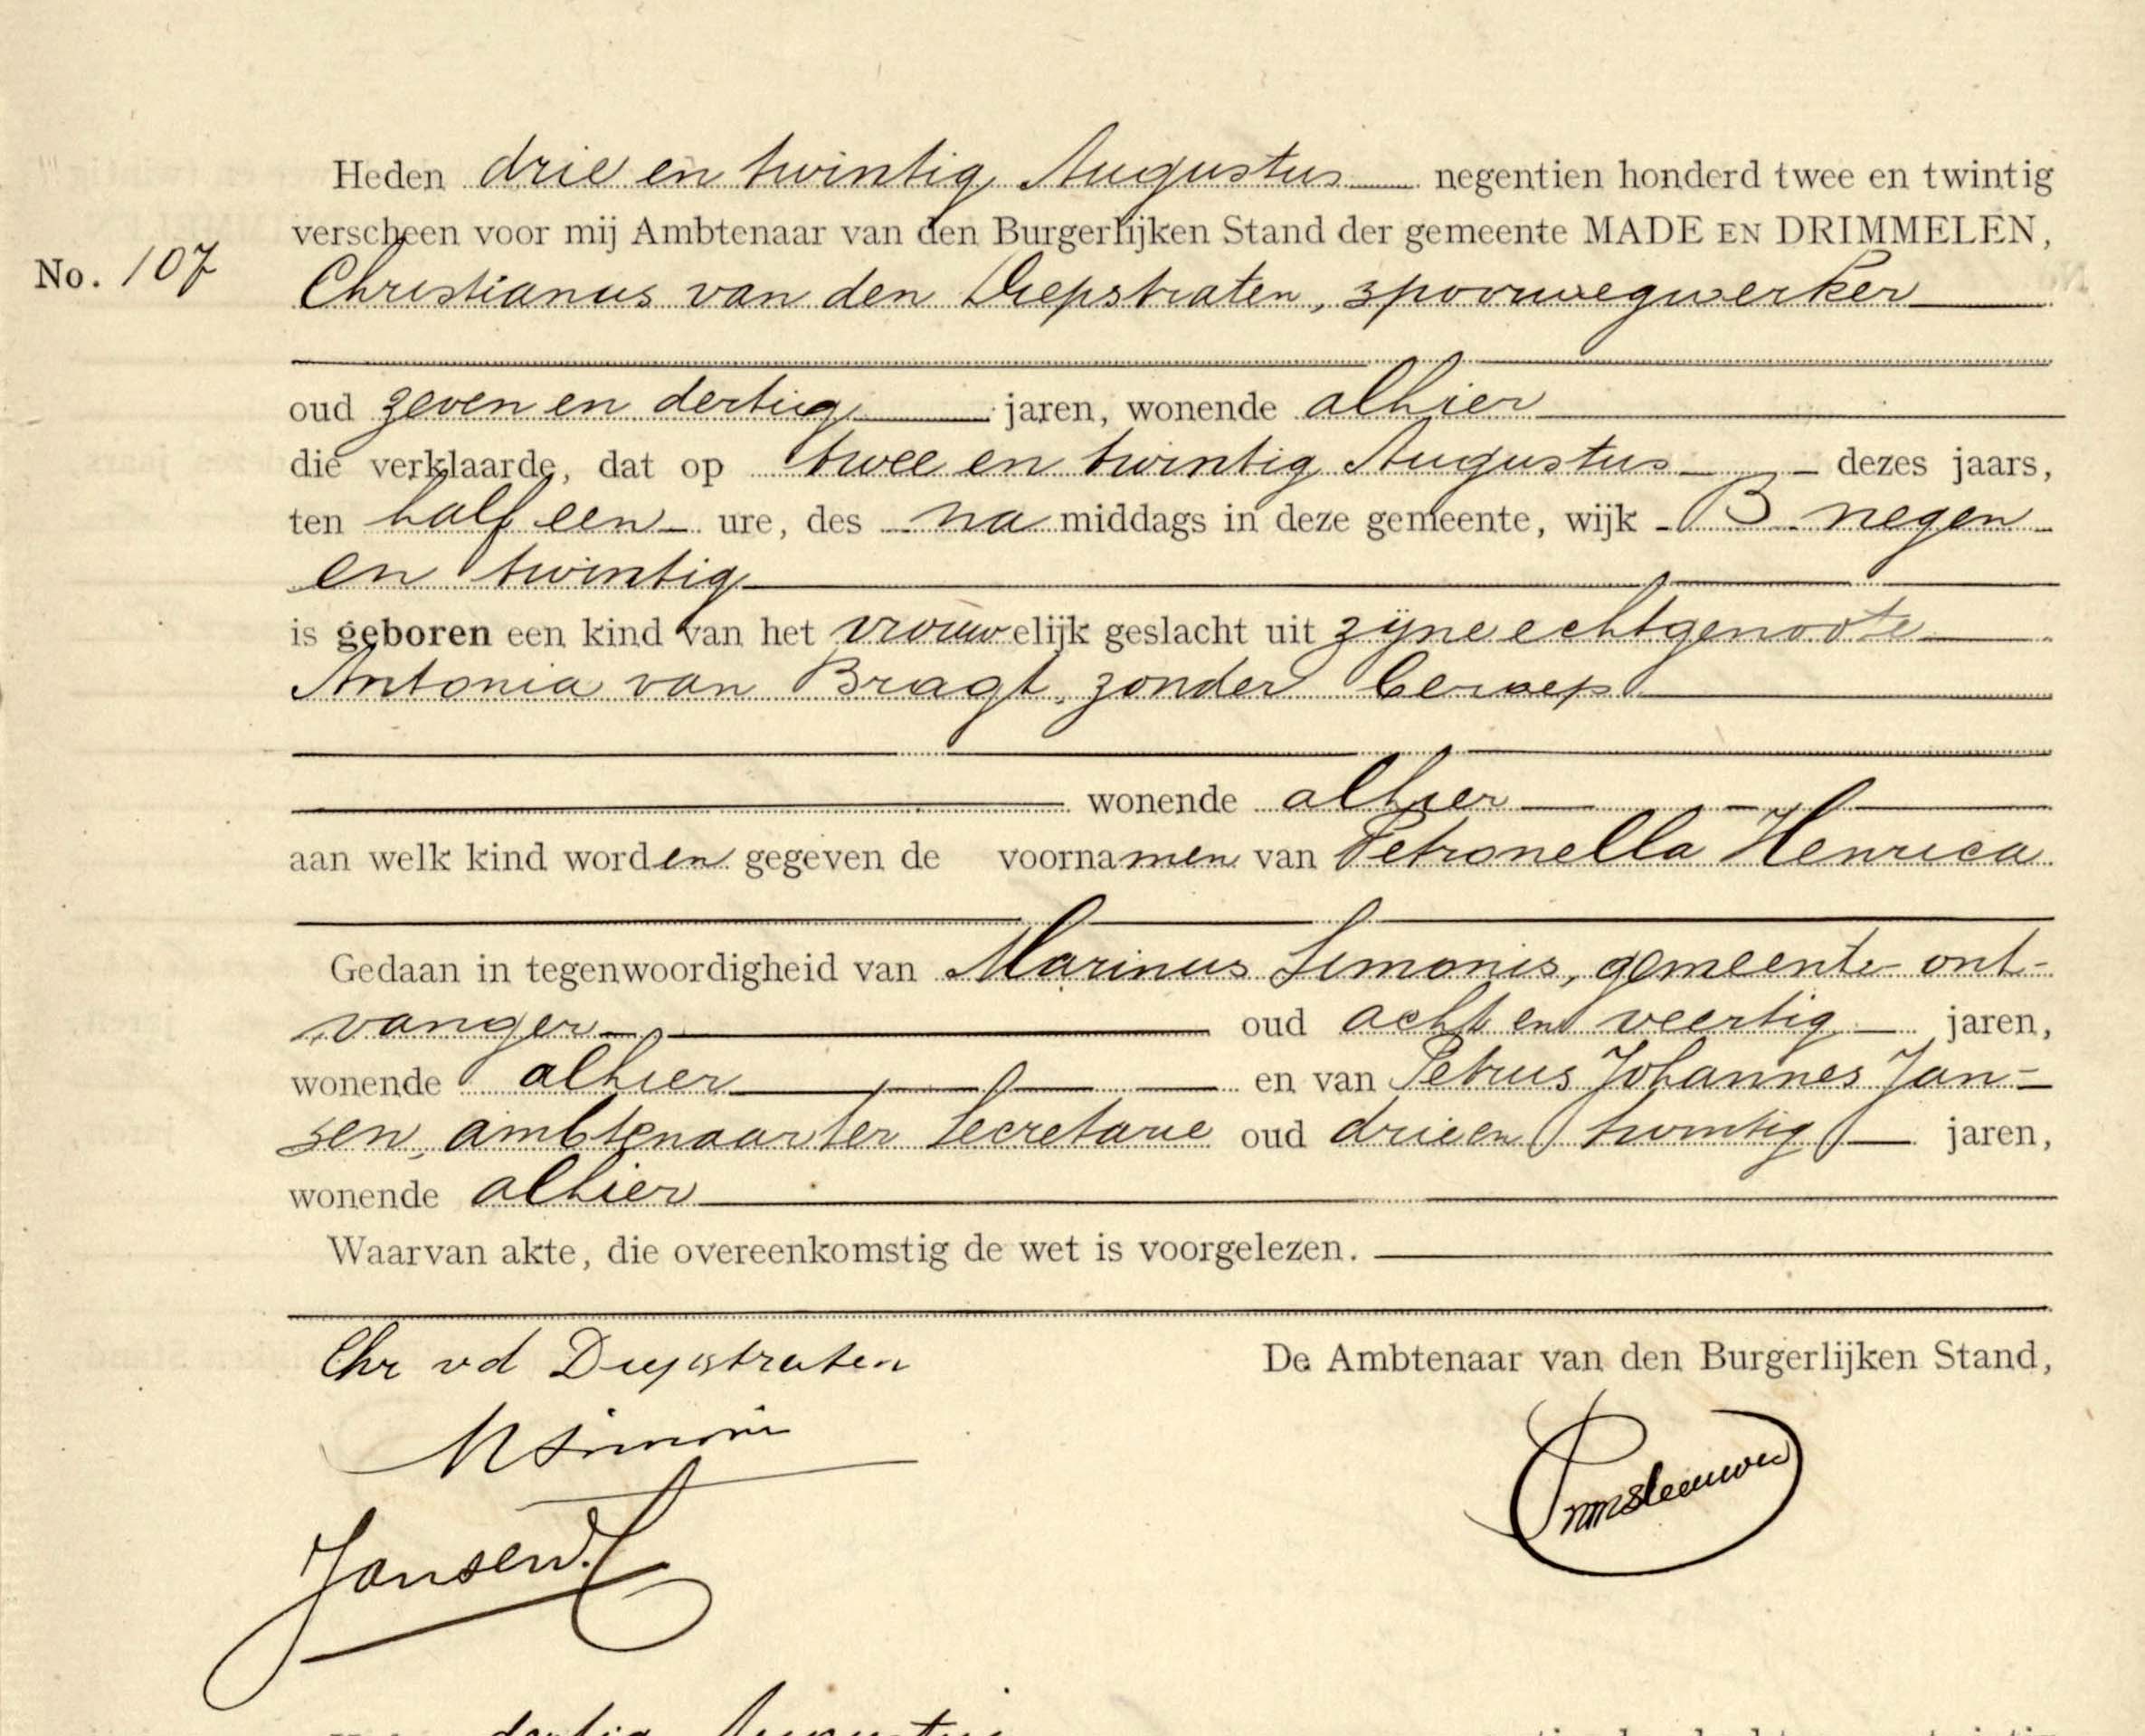 Heden drie en twintig Augustus negentien honderd twee en twintig
verscheen voor mij Ambtenaar van den Burgerlijken Stand der gemeente MADE EN DRIMMELEN,
No. 107
Christianus van den Diepstraten, spoorwegwerker
oud zeven en dertig jaren, wonende alhier
die verklaarde, dat op twee en twintig Augustus dezes jaars,
ten half een ure, des na middags in deze gemeente, wijk B negen
en twintig
is geboren een kind van het vrouwelijk geslacht uit zijne echtgenoote
Antonia van Bragt, zonder beroep
wonende alhier
aan welk kind worden gegeven de voornamen van Petronella Henrica
Gedaan in tegenwoordigheid van Marinus Simonis, gemeente ont-
vanger oud acht en veertig jaren,
wonende alhier en van Petrus Johannes Jan-
sen, ambtenaar ter Secretarie oud drie en twintig jaren,
wonende alhier
Waarvan akte, die overeenkomstig de wet is voorgelezen.
Chr vd Diepstraten
De Ambtenaar van den Burgerlijken Stand,
M Simonis
Jansen
dertig Augustus